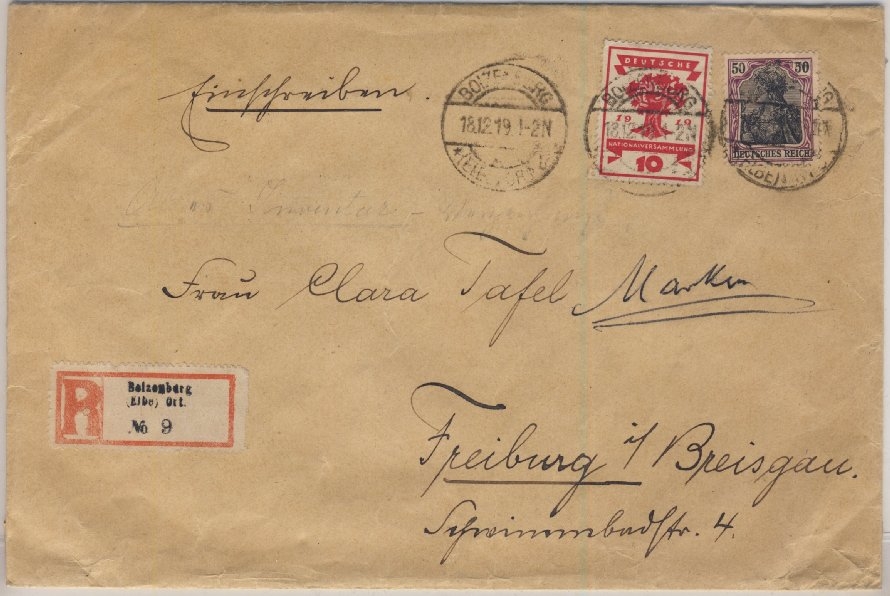 Einschreiben.
BOIZENBURG
18.12.19. 1-2N
DEUTSCHE
1919
NATIONALVERSAMMLUNG
10
50 50
DEUTSCHES REICH
Inventar -
Frau Clara Tafel Marken
R
Boizenburg
(Elbe) Ort.
№ 9
Freiburg i/ Breisgau.
Schwimmbadstr. 4.